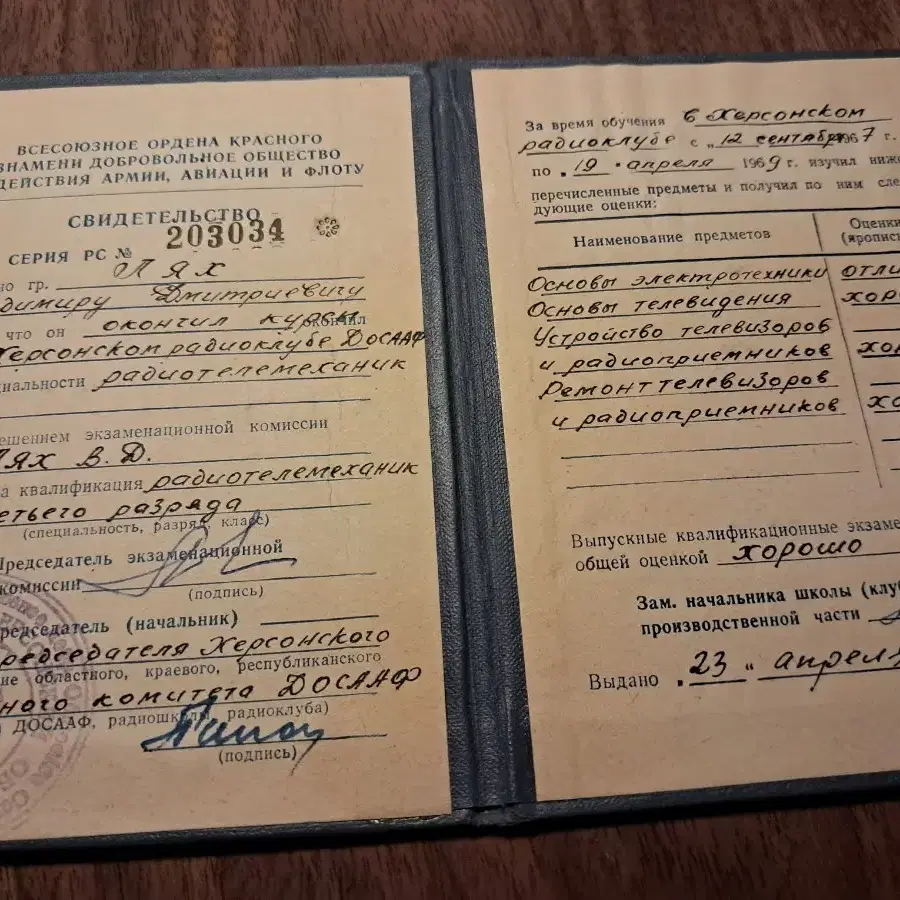 ВСЕСОЮЗНОЕ ОРДЕНА КРАСНОГО
ЗНАМЕНИ ДОБРОВОЛЬНОЕ ОБЩЕСТВО
ДЕЙСТВИЯ АРМИИ, АВИАЦИИ И ФЛОТУ
СВИДЕТЕЛЬСТВО
СЕРИЯ РС № 203034
но гр. ЛЯХ
димиру Дмитриевичу
что он окончил курсы окончил
Херсонском радиоклубе ДОСААФ
циальности радиотелемеханик
ешением экзаменационной комиссии
ЛЯХ В. Д.
а квалификация радиотелемеханик
етьего разряда
(специальность, разряд, класс)
Председатель экзаменационной
комиссии
(подпись)
редседатель (начальник)
редседателя Херсонского
ние областного, краевого, республиканского
ного комитета ДОСААФ
ДОСААФ, радиошколы, радиоклуба)
(подпись)
За время обучения в Херсонском
радиоклубе с „12 сентября 1967 г.
по „19 " апреля 1969 г. изучил ниже
перечисленные предметы и получил по ним сле
дующие оценки:
Наименование предметов
Оценки
(пропис
Основы электротехники отли
Основы телевидения хор
Устройство телевизоров
и радиоприемников хо
Ремонт телевизоров
и радиоприемников хо
Выпускные квалификационные экзаме
общей оценкой хорошо
Зам. начальника школы (клу
производственной части
Выдано „23 " апреля